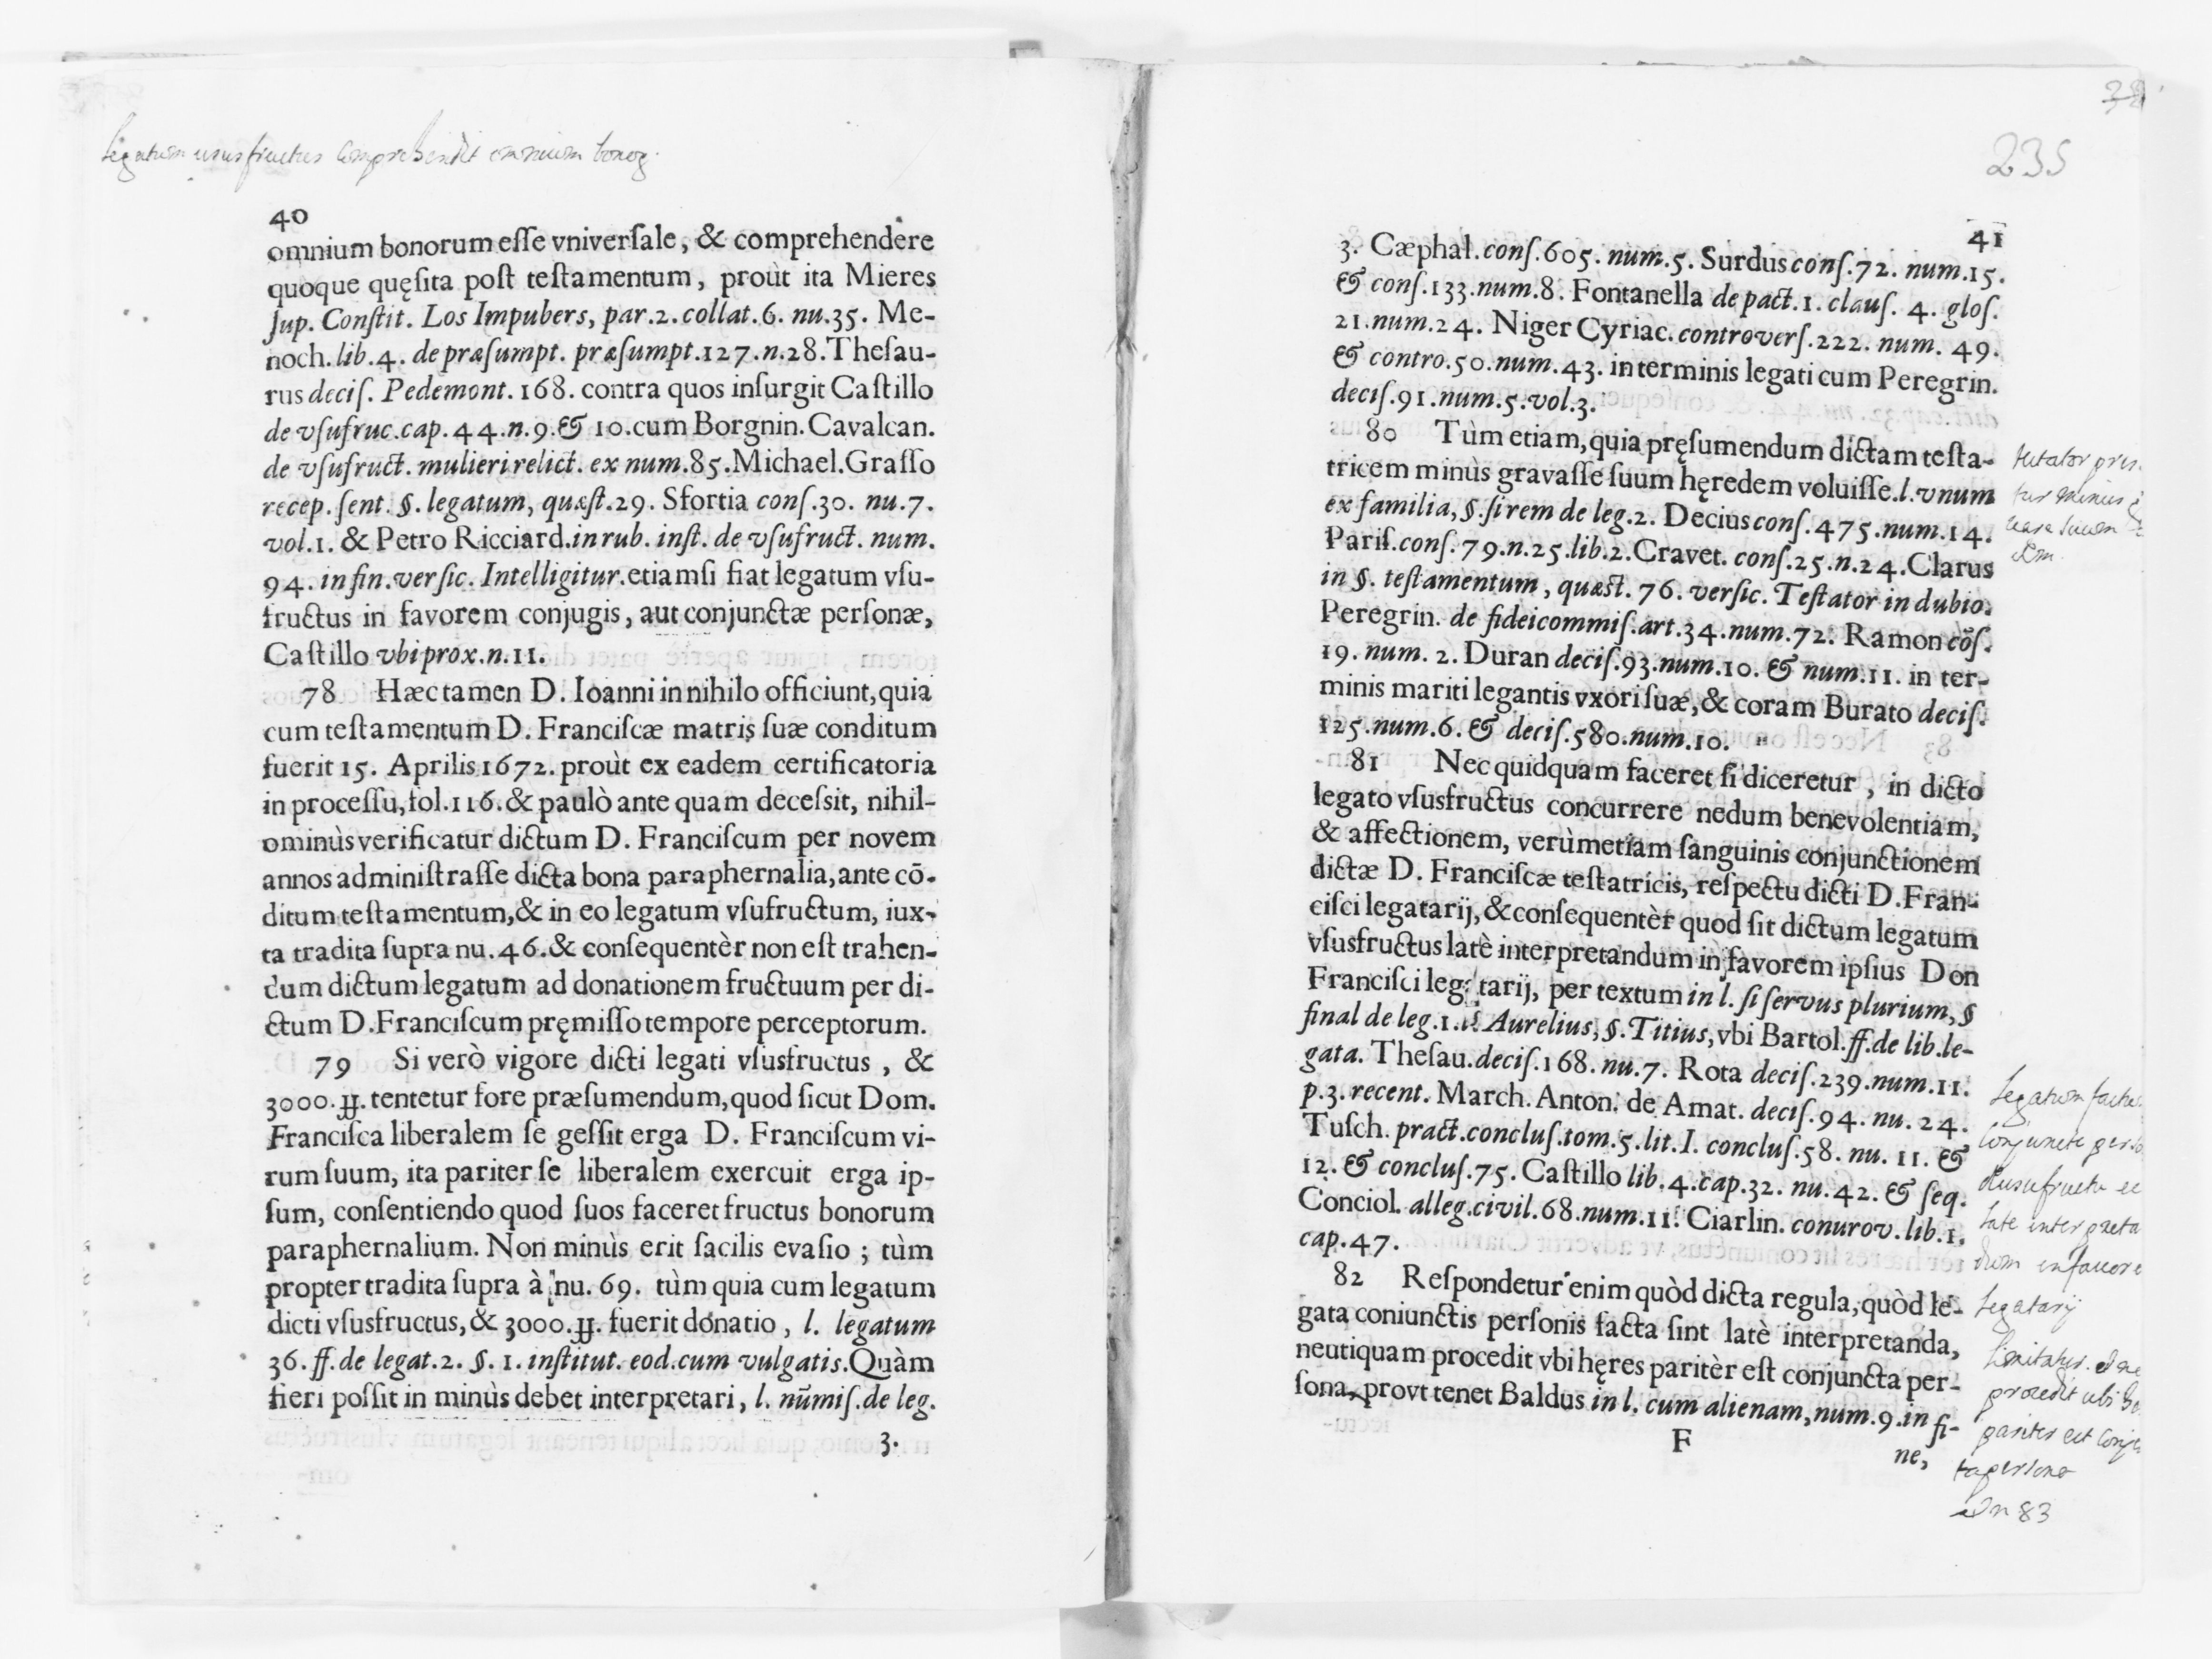 Legatum ususfructus comprehendit omnium bonor.
40
omnium bonorum eſſe vniverſale, & comprehendere
quoque quęſita poſt teſtamentum, proùt ita Mieres
ſup. Conſtit. Los Impubers, par.2.collat.6. nu.35. Me-
noch.lib.4. de præſumpt. præſumpt.127.n.28.Theſau-
rus deciſ. Pedemont.168. contra quos inſurgit Caſtillo
de vſufruc.cap.44.n.9.& 10.cum Borgnin.Cavalcan.
de vſufruct. mulieri relict. ex num.85.Michael.Graſſo
recep.ſent. §. legatum, quæſt.29. Sfortia conſ.30. nu.7.
vol.1. & Petro Ricciard.in rub. inſt. de vſufruct. num.
94. in fin.verſic. Intelligitur.etiamſi fiat legatum vſu-
fructus in favorem conjugis, aut conjunctæ perſonæ,
Caſtillo vbi prox.n.11.
78 Hæc tamen D. Ioanni in nihilo officiunt,quia
cum teſtamentum D. Franciſcæ matris ſuæ conditum
fuerit 15. Aprilis 1672. proùt ex eadem certificatoria
in proceſſu, fol.116.& paulò ante quam deceſsit, nihil-
ominùs verificatur dictum D. Franciſcum per novem
annos adminiſtraſſe dicta bona paraphernalia,ante cō-
ditum teſtamentum,& in eo legatum vſufructum, iux-
ta tradita ſupra nu.46.& conſequentèr non eſt trahen-
dum dictum legatum ad donationem fructuum per di-
ctum D.Franciſcum pręmiſſo tempore perceptorum.
79 Si verò vigore dicti legati vſusfructus, &
3000. ħ. tentetur fore præſumendum,quod ſicut Dom.
Franciſca liberalem ſe geſſit erga D. Franciſcum vi-
rum ſuum, ita pariter ſe liberalem exercuit erga ip-
ſum, conſentiendo quod ſuos faceret fructus bonorum
paraphernalium. Non minùs erit facilis evaſio ; tùm
propter tradita ſupra à nu. 69. tùm quia cum legatum
dicti vſusfructus,& 3000. ħ. fuerit donatio, l. legatum
36.ff.de legat.2. §. 1. inſtitut. eod.cum vulgatis.Quàm
fieri poſſit in minùs debet interpretari, l. nūmiſ.de leg.
3.
235
41
3. Cæphal.conſ.605. num.5. Surdus conſ.72. num.15.
& conſ.133.num.8. Fontanella de pact.1. clauſ. 4. gloſ.
21.num.24. Niger Cyriac.controverſ.222. num. 49.
& contro.50.num.43. in terminis legati cum Peregrin.
deciſ.91.num.5.vol.3.
80 Tùm etiam,quia pręſumendum dictam teſta-
tricem minùs gravaſſe ſuum hęredem voluiſſe.l.vnum
ex familia, §.ſi rem de leg.2. Decius conſ.475.num.14.
Pariſ.conſ.79.n.25.lib.2.Cravet. conſ.25.n.24.Clarus
in §. teſtamentum, quæſt. 76. verſic. Teſtator in dubio.
Peregrin. de fideicommiſ.art.34.num.72. Ramon cōſ.
19. num. 2. Duran deciſ.93.num.10. & num.11. in ter-
minis mariti legantis vxori ſuæ,& coram Burato deciſ.
125.num.6. & deciſ.580.num.10.
81 Nec quidquam faceret ſi diceretur, in dicto
legato vſusfructus concurrere nedum benevolentiam,
& affectionem, verùmetiam ſanguinis conjunctionem
dictæ D. Franciſcæ teſtatricis, reſpectu dicti D.Fran-
ciſci legatarij, & conſequentèr quod ſit dictum legatum
vſusfructus latè interpretandum in favorem ipſius Don
Franciſci legatarij, per textum in l. ſi ſervus plurium, §
final de leg.1. Aurelius, §.Titius, vbi Bartol.ff.de lib.le-
gata. Theſau.deciſ.168.nu.7. Rota deciſ.239.num.11.
p.3.recent. March.Anton. de Amat. deciſ.94. nu. 24.
Tuſch. pract.concluſ.tom.5.lit.I. concluſ.58. nu. 11. &
12. & concluſ.75. Caſtillo lib.4.cap.32. nu.42. & ſeq.
Conciol. alleg.civil.68.num.11. Ciarlin. conurov.lib.1.
cap.47.
82 Reſpondetur enim quòd dicta regula,quòd le-
gata coniunctis perſonis facta ſint latè interpretanda,
neutiquam procedit vbi hęres paritèr eſt conjuncta per-
ſona, provt tenet Baldus in l. cum alienam,num.9.in fi-
F
ne,
Legatum
late interpreta
legatarij
procedit ubi
pariter est
ta persona
n 83